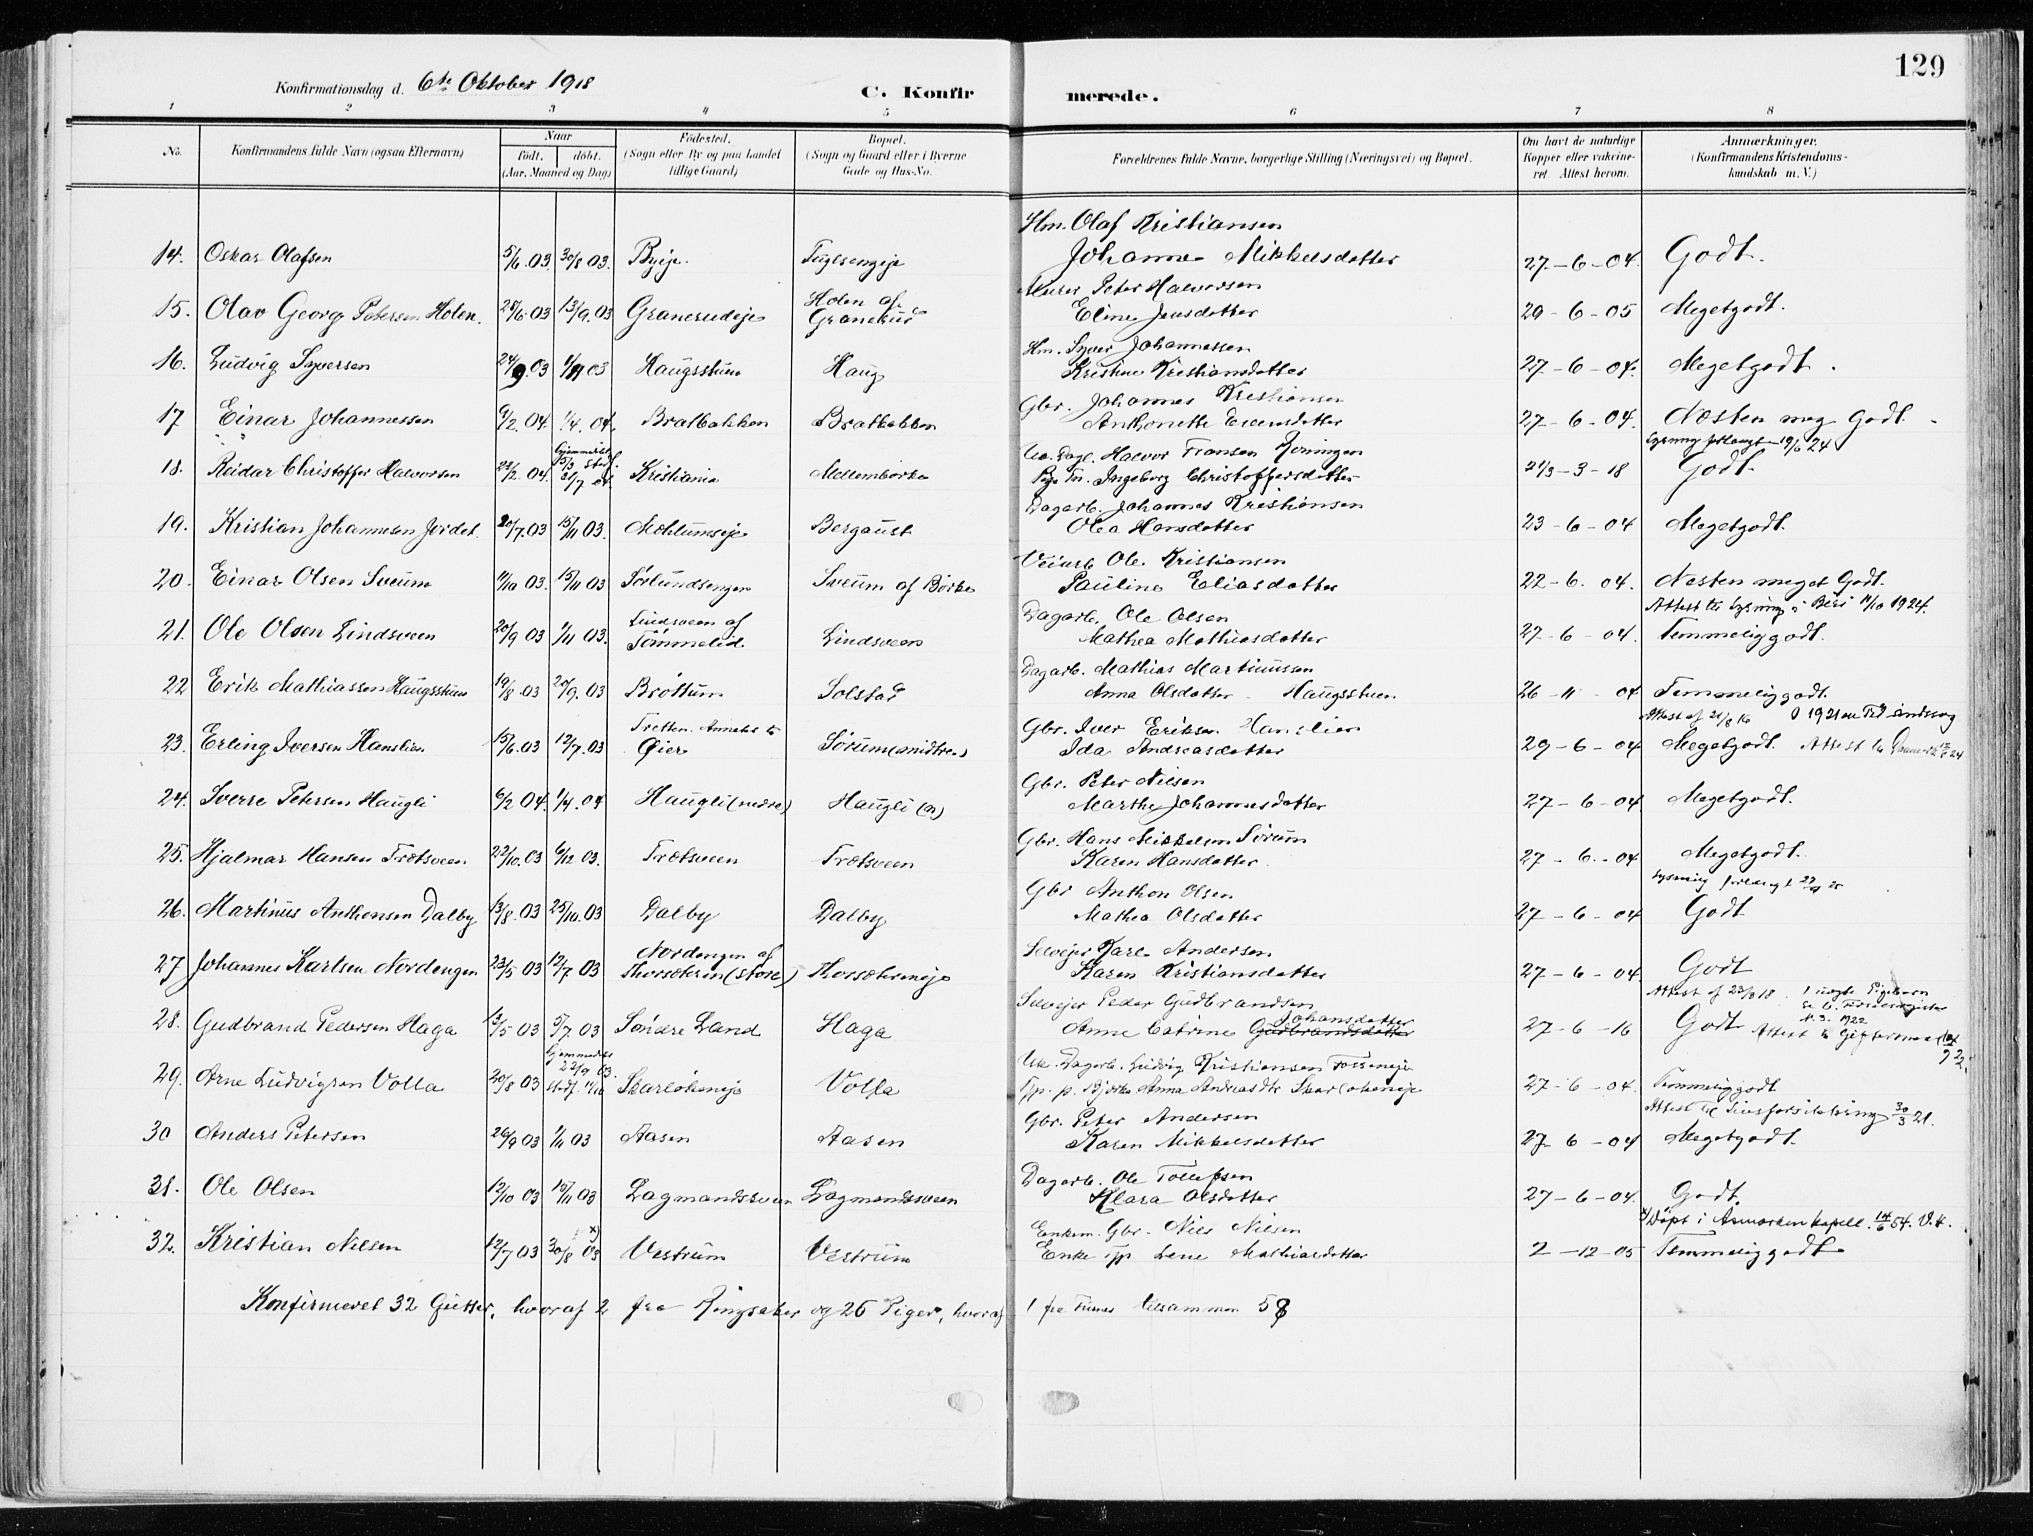 129
Konfirmationsdag d. 6te Oktober 1918
C. Konfirmerede.
1 2 3 4 5 6 7 8
No. Konfirmandens fulde Navn (ogsaa Efternavn) Naar født. døbt. (Aar, Maaned og Dag) Fødested. (Sogn eller By og paa Landet tillige Gaard) Bopæl. (Sogn og Gaard eller i Byerne Gade og Hus-No. Forældrenes fulde Navne, borgerlige Stilling (Næringsvei) og Bopæl. Om havt de naturlige Kopper eller vakcineret. Attest herom. Anmærkninger. (Konfirmandens Kristendomskundskab m. V.)
Hm. Olaf Kristiansen
14. Oskar Olafsen 5/6.03 30/8 03. Byeje. Johanne Mikkelsdatter 27-6-04. Godt.
Murer Peter Halvorsen
15. Olav Georg Petersen Holen. 28/6.03 13/9.03 Granerudeje Holen af Granerud Eline Jensdatter 29-6-05 Megetgodt.
Hm. Syver Johannessen
16. Ludvig Syversen 24/9.03 1/11 03 Haugsstuen Haug Kristine Kristiansdatter 27-6-04. Megetgodt.
Gbr. Johannes Kristiansen
17 Einar Johannessen 9/2.04. 1/4.04. Bratbakken Bratbakken Anthonette Evensdatter 27-6-04. Næsten meg. Godt.
Lysning forlangt 19/6 24
Halvor Fransen
18. Reidar Christoffer Halvorsen 29/2.04. Kristiania Mellembørke Ingeborg Christoffersdatter 21/3-3-18 Godt.
Dagarb. Johannes Kristiansen
19. Kristian Johannesen Jordet. 20/7.03 15/11 03. Mæhlumseje Bergaust Olea Hansdatter 23-6-04 Megetgodt.
Veiarb. Ole Kristiansen
20. Einar Olsen Sveum 9/10 03. 15/11 03 Sørlundsengen Sveum af Børke Pauline Eliasdatter 22-6.04. Næsten meget Godt.
Attest til Lysning i Biri 11/10 1924.
Dagarb. Ole Olsen
21. Ole Olsen Lindsveen 20/9 03 1/11 03. Lindsveen af Tömmelid Lindsveen Mathea Mathiasdatter 27-6-04. Temmeliggodt.
Dagarb. Mathias Martinussen
22 Erik Mathiassen Haugsstuen 19/8.03 20/9.03 Brøttum Solstad Anna Olsdatter Haugsstuen. 26-11-04 Temmeliggodt.
Gbr. Iver Eriksen Hanslien
23. Erling Iversen Hanslien 15/6.03 12/7.03 Øier Sørum (midtre) Ida Andreasdatter 29-6-04 Megetgodt.
Gbr. Peter Nilsen
24. Sverre Petersen Haugli 6/2 04. 1/4.04 Haugli (nedre) Haugli (n) Marthe Johannesdatter 27-6-04 Megetgodt.
Gbr. Hans Mikkelsen Sørum
25. Hjalmar Hansen Trætsveen 22/10.03 6/12 03. Trætsveen Trætsveen Karen Hansdatter 27-6-04 Megetgodt.
Lysning forlangt
Gbr Anthon Olsen
26. Martinus Anthonsen Dalby 13/8.03 25/10.03 Dalby Dalby Mathea Olsdatter 27-6-04 Godt
Selvejer Karl Andersen
27 Johannes Karlsen Nordengen 23/5 03 12/7 03 Nordengen af Thorsætren (store) Thorsætreneje Karen Kristiansdatter 27-6-04. Godt
Selvejer Peder Gudbrandsen
28. Gudbrand Pedersen Haga 13/5 03 5/7 03 Søndre Land Haga Anne Catrine Gudbrandsdatter Johansdatter 27-6-16 Godt
Dagarb. Ludvig Kristiansen
29. Arne Ludvigsen Volla 20/8 03 Hjemmedbt 22/9 03. Skarløkeneje Volla Anna Andreasdtr Skarløkeneje 27-6-04. Temmeliggodt
Gbr. Peter Andersen
30 Anders Petersen 26/9 03 1/11 03 Aasen Aasen Karen Mikkelsdatter 27-6-04 Megetgodt.
Dagarb. Ole Tollefsen
31. Ole Olsen 12/10 03 15/11 03 Lagmandssveen Lagmandssveen Klara Olsdatter 27-6-04. Godt.
x) Døpt i Åsmarken kapell. 14/6 54.
Gbr. Niels Nilsen
32. Kristian Nilsen 12/7 03 30/8 03 x) Vestrum Vestrum Enke Lene Mathiasdatter 2-12-05 Temmeliggodt
Konfirmeret 32 Gutter, hvoraf 2 fra Ringsaker og 26 Piger, hvoraf 1 fra Furnes tilsammen 58